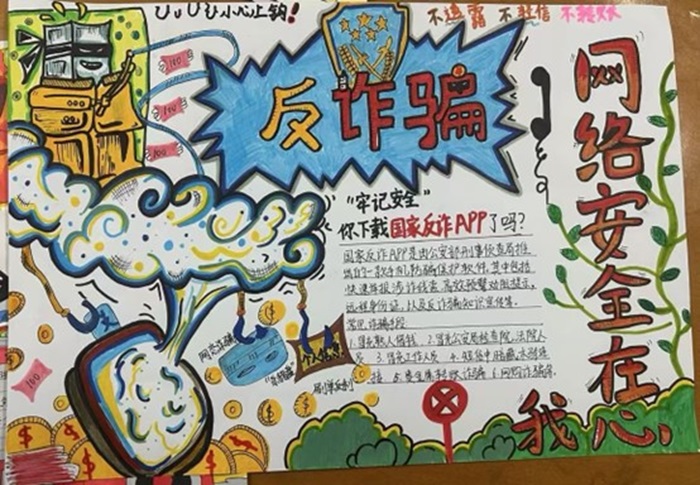 小心上钩!
不透露 不轻信 不转账
反诈骗
网络安全在我心
100
100
100
"牢记安全"
你下载国家反诈APP了吗?
国家反诈APP是由公安部刑事侦查局推
出的一款手机防骗保护软件,其中包括
快速举报涉诈线索、高效预警劝阻提示、
远程身份证,以及反诈骗知识宣传等。
常见诈骗手段
1.冒充熟人借钱 2.冒充公安局检查院、法院人
员 3.冒充工作人员 4.短信中隐藏木马链
接 5.诈骗 6.网购诈骗等
网恋诈骗
个人信息
刷单返利
100